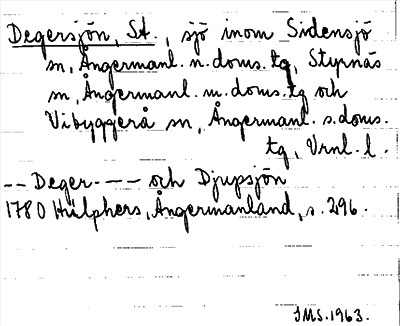 Degersjön, St., sjö inom Sidensjö
sn, Ångermanl. n. doms. tg, Styrnäs
sn, Ångermanl. m. doms. tg och
Vibyggerå sn, Ångermanl. s. doms.
tg, Vrnl. l.
-- Deger- -- -- och Djupsjön
1780 Hülphers, Ångermanland, s. 296.
IMS. 1963.